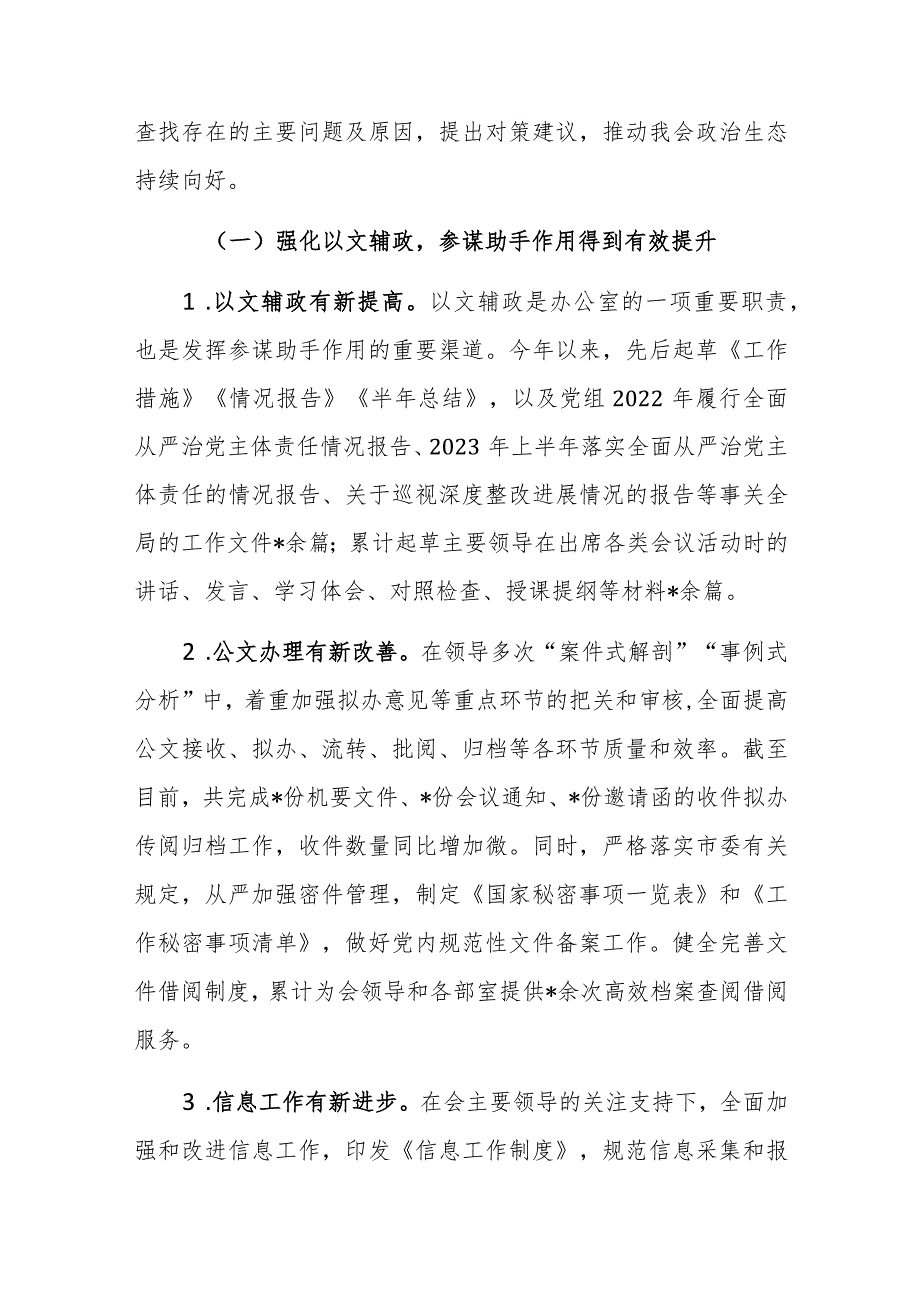 查找存在的主要问题及原因，提出对策建议，推动我会政治生态
持续向好。
（一）强化以文辅政，参谋助手作用得到有效提升
1 .以文辅政有新提高。以文辅政是办公室的一项重要职责，
也是发挥参谋助手作用的重要渠道。今年以来，先后起草《工作
措施》《情况报告》《半年总结》，以及党组 2022 年履行全面
从严治党主体责任情况报告、2023 年上半年落实全面从严治党主
体责任的情况报告、关于巡视深度整改进展情况的报告等事关全
局的工作文件*余篇；累计起草主要领导在出席各类会议活动时的
讲话、发言、学习体会、对照检查、授课提纲等材料*余篇。
2 .公文办理有新改善。在领导多次“案件式解剖”“事例式
分析”中，着重加强拟办意见等重点环节的把关和审核,全面提高
公文接收、拟办、流转、批阅、归档等各环节质量和效率。截至
目前，共完成*份机要文件、*份会议通知、*份邀请函的收件拟办
传阅归档工作，收件数量同比增加微。同时，严格落实市委有关
规定，从严加强密件管理，制定《国家秘密事项一览表》和《工
作秘密事项清单》，做好党内规范性文件备案工作。健全完善文
件借阅制度，累计为会领导和各部室提供*余次高效档案查阅借阅
服务。
3 .信息工作有新进步。在会主要领导的关注支持下，全面加
强和改进信息工作，印发《信息工作制度》，规范信息采集和报